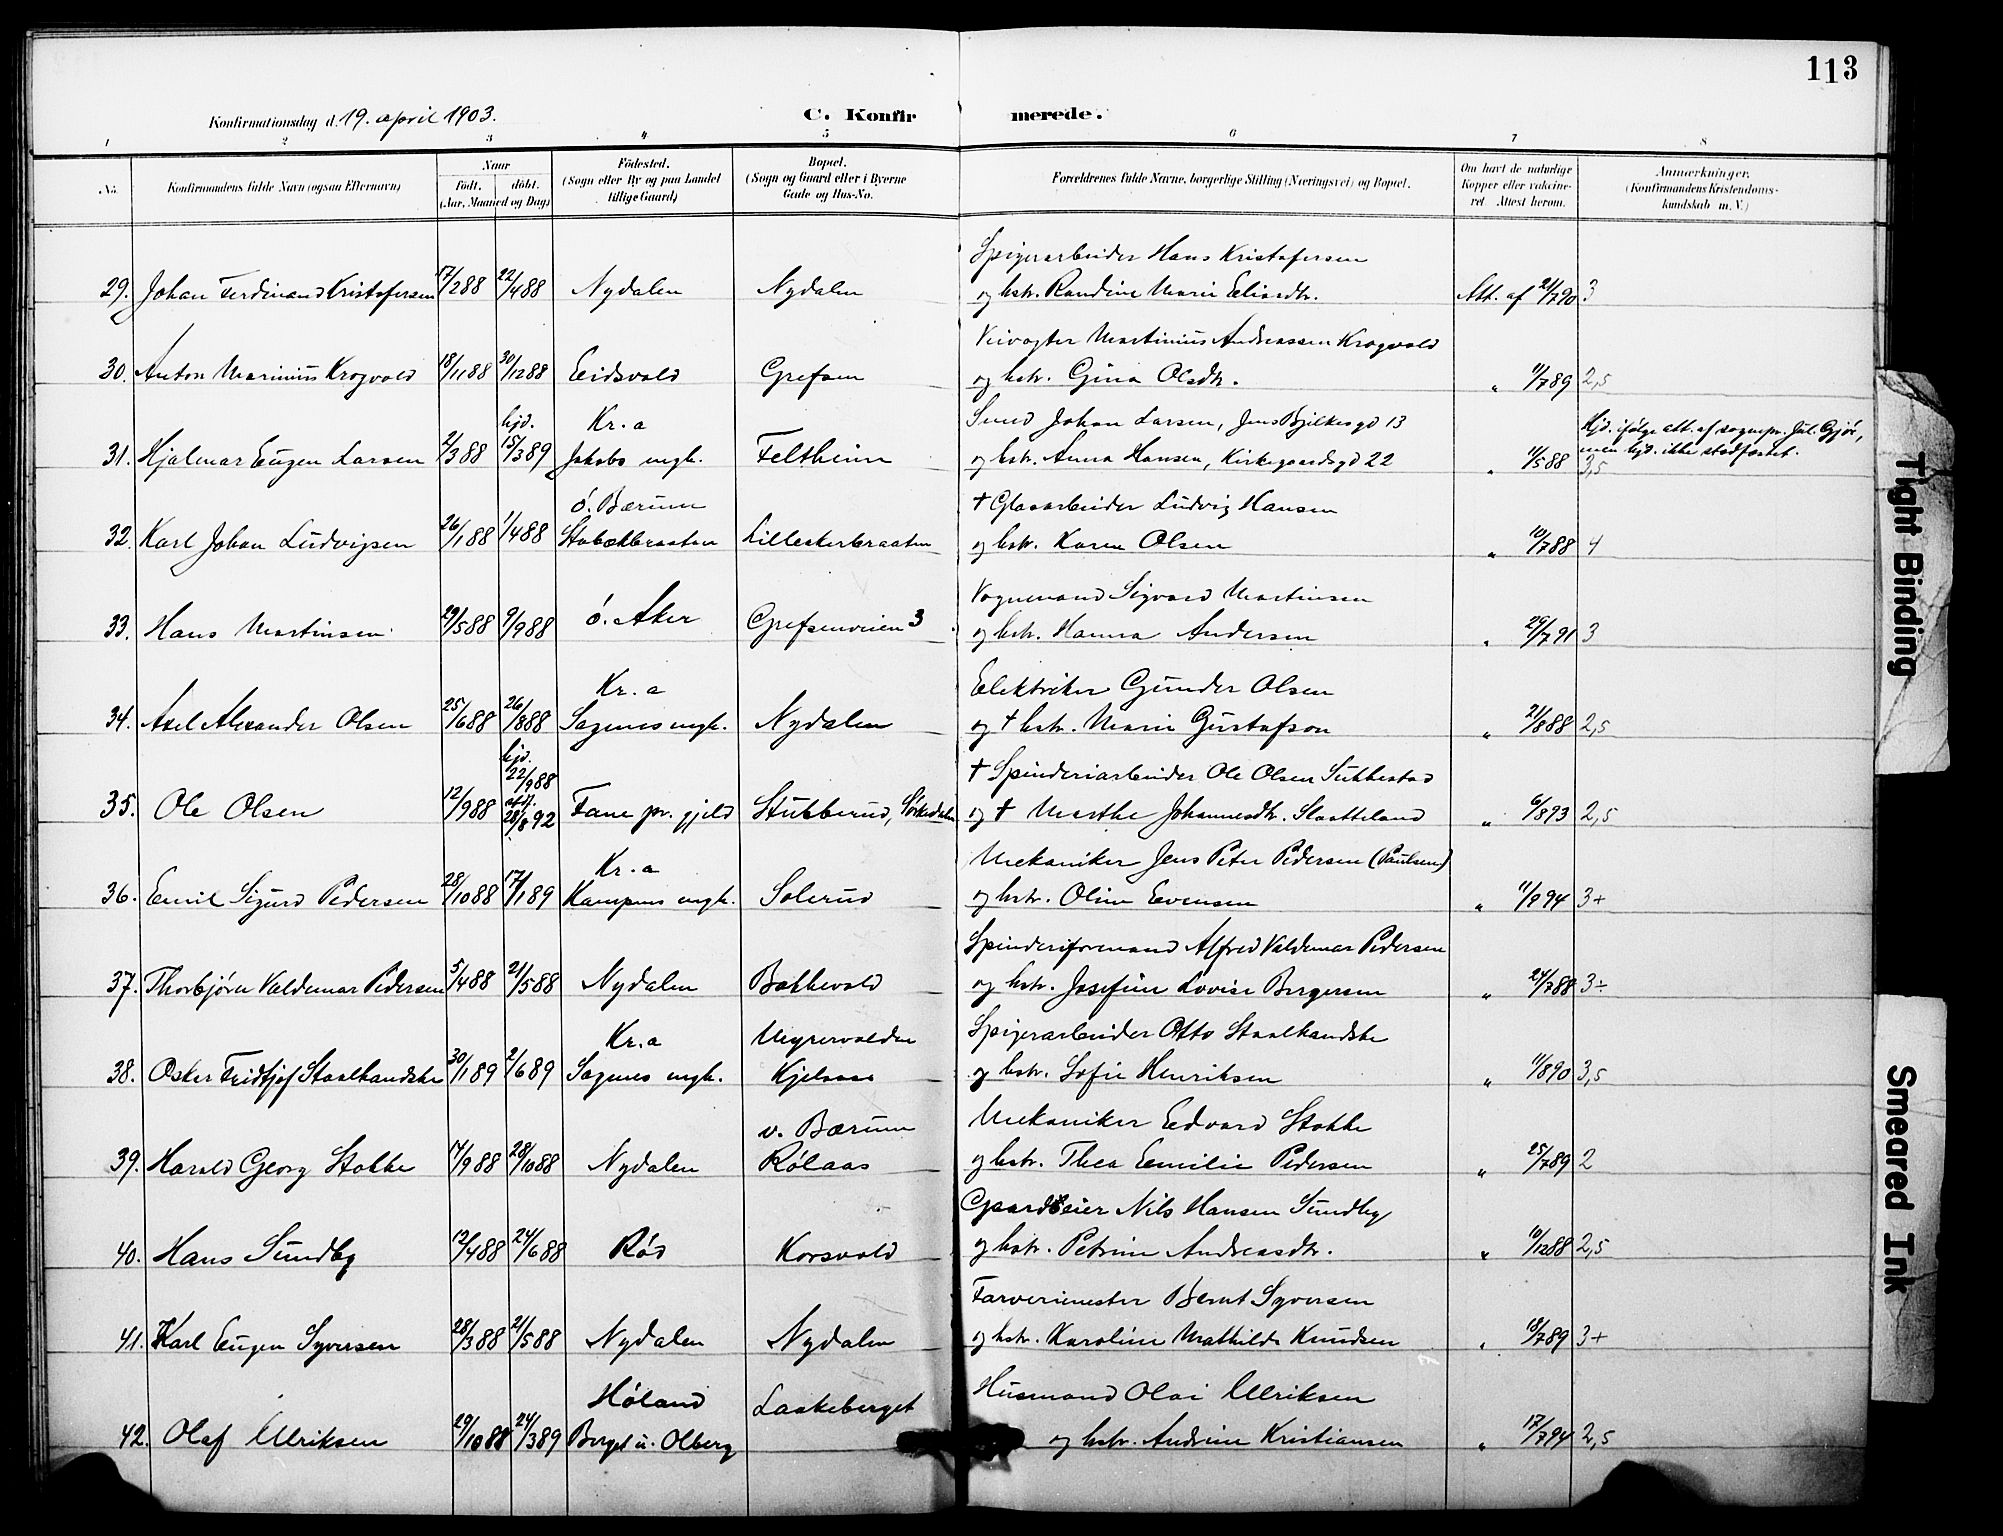 113
Konfirmationsdag d. 19. april 1903.
C. Konfirmerede.
1 2 3 4 5 6 7 8
No.
Konfirmandens fulde Navn (ogsaa Efternavn)
Naar
födt. döbt.
(Aar, Maaned og Dag)
Födested.
(Sogn eller By og paa Landet
tillige Gaard)
Bopæl.
(Sogn og Gaard eller i Byerne
Gade og Hus-No.
Forældrenes fulde Navne, borgerlige Stilling (Næringsvei) og Bopæl.
Om havt de naturlige
Kopper eller vakcine-
ret Attest herom.
Anmærkninger.
(Konfirmandens Kristendoms-
kundskab m. V.)
Spigerarbeider Hans Kristofersen
29. Johan Ferdinand Kristofersen 17/2 88 22/4 88 Nydalen Nydalen og hstr. Randine Marie Eliasdtr. Att. af 21/7 90 3
Veivogter Martinius Andreassen Krogvold
30. Anton Marinius Krogvold 18/11 88 30/12 88 Eidsvold Grefsen og hstr. Gina Olsdtr. " 11/7 89 2,5
hjd. Kr.a Smed Johan Larsen, Jens Bjelkesgd 13 Hjd. ifølge att. af sognepr. Jul. Gjør,
men hjd. ikke stadfæstet.
31. Hjalmar Eugen Larsen 2/3 88 15/3 89 Jakobs mgh. Feltheim og hstr. Anna Hansen, Kirkegaardsgd 22 " 11/5 88 3,5
ö. Bærum + Glasarbeider Ludvig Hansen
32. Karl Johan Ludvigsen 26/1 88 1/4 88 Stabækbraaten Lilleakerbraaten og hstr. Karen Olsen " 10/7 88 4
Vognmand Sigvard Martinsen
33. Hans Martinsen 29/5 88 9/9 88 ö. Aker Grefsenveien 3 og hstr. Hanna Andersen " 29/7 91 3
Kr.a Elektriker Gunder Olsen
34. Axel Alexander Olsen 25/6 88 26/8 88 Sagenes mgh. Nydalen og + hstr. Marie Gustafson " 21/8 88 2,5
hjd.
22/9 88 + Spinderiarbeider Ole Olsen Sukkestad
35. Ole Olsen 12/9 88 stdf. 28/8 92 Fane pr. gjeld Stubberud, Sörkedalen og + Marthe Johannesdtr. Slaatteland " 6/8 93 2,5
Kr.a Mekaniker Jens Peter Pedersen (Paulsen)
36. Emil Sigurd Pedersen 28/10 88 17/1 89 Kampens mgh. Solerud og hstr. Oline Evensen " 11/8 94 3+
Spinderiformand Alfred Valdemar Pedersen
37. Thorbjörn Valdemar Pedersen 5/4 88 21/5 88 Nydalen Bakkevold og hstr. Josefine Lovise Borgersen " 24/7 88 3÷
Kr.a Myrervolden Spigerarbeider Otto Staalhandske
38. Oskar Fridtjof Staalhandske 30/1 89 2/6 89 Sagenes mgh. Kjelsaas og hstr. Sofie Henriksen " 11/8 90 3,5
v. Bærum Mekaniker Edvard Stokke
39. Harald Georg Stokke 14/9 88 28/10 88 Nydalen Rölaas og hstr. Thea Emilie Pedersen " 25/7 89 2
Gaardeier Nils Hansen Sundby
40. Hans Sundby 12/4 88 24/6 88 Röd Korsvold og hstr. Petrine Andreasdtr. " 10/12 88 2,5
Farverimester Bernt Syversen
41. Karl Eugen Syversen 28/3 88 21/5 88 Nydalen Nydalen og hstr. Karoline Mathilde Knudsen " 18/7 89 3+
Höland Laakeberget Husmand Olai Ulriksen
42. Olaf Ulriksen 29/10 88 24/3 89 Berget u. Olberg og hstr. Andrine Kristiansen " 17/7 94 2,5
Tight Binding
Smeared Ink